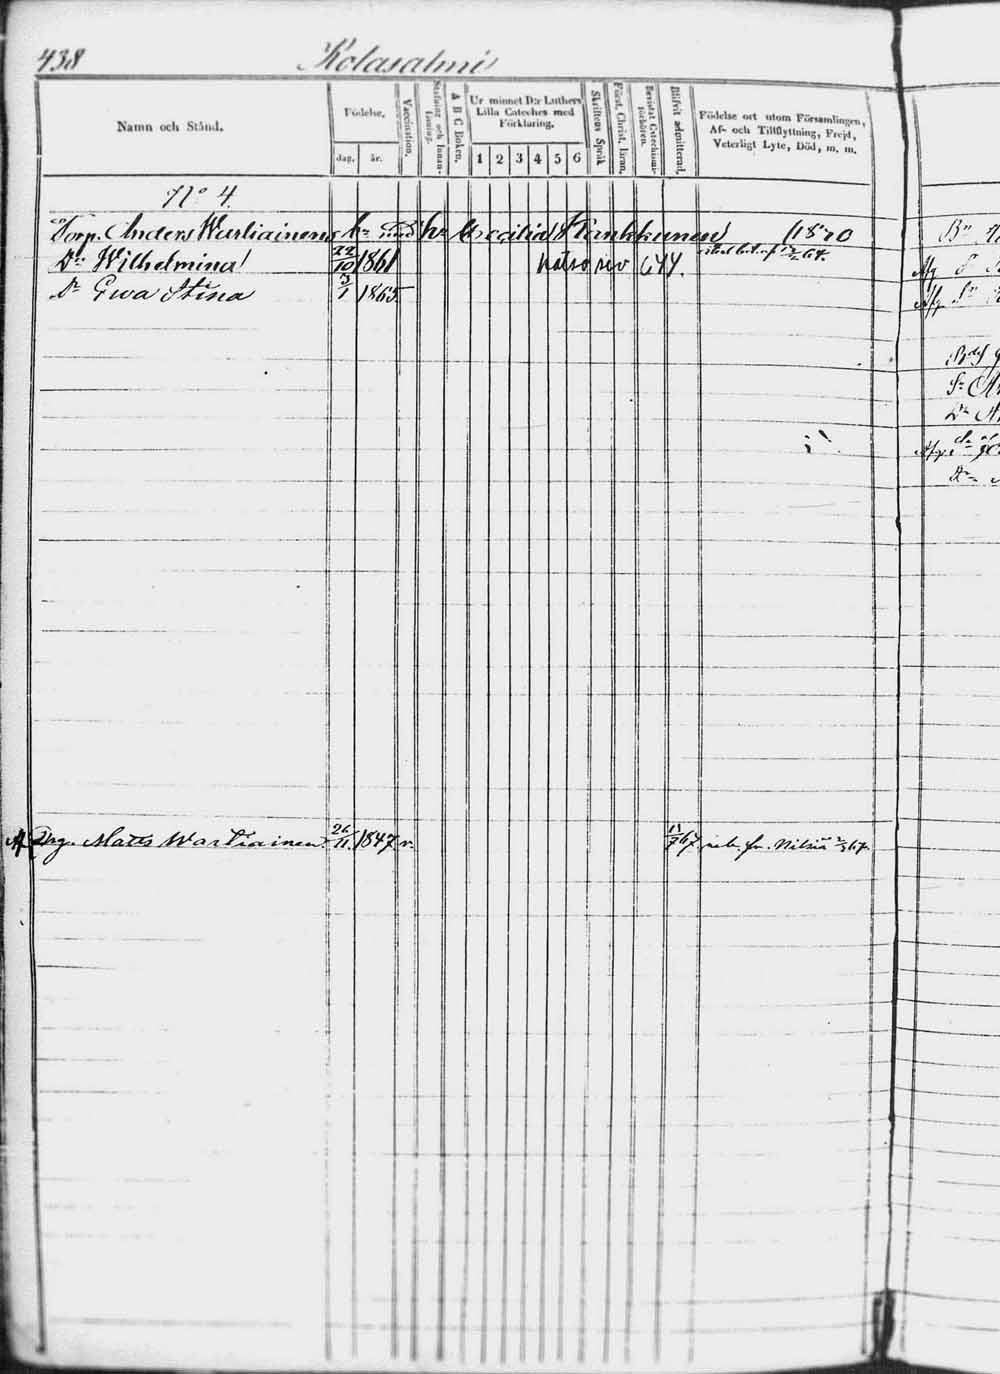 438 Kolasalmi
Namn och Stånd.
Födelse,
dag.
år.
Vaccination.
Stafning och Innan-läsning.
A B C Boken.
Ur minnet D:r Luthers
Lilla Cateches med
Förklaring.
1 2 3 4 5 6
Skriftens Språk
Först. Christ. läran.
Bevistat Catechismi-förhören.
Blifvit admitterad.
Födelse ort utom Församlingen,
Af- och Tillflyttning, Frejd,
Veterligt Lyte, Död, m. m.
N:o 4.
Torp. Anders Wartiainens h:u med h:u Cecilia Kankkunen 1870
D:r Wilhelmina 22/10 1861 katso siv 644.
D:r Ewa Stina 3/1 1865
Drg. Matts Wartiainen 26/11 1847 v. 67 fr. Nilsiä 67.